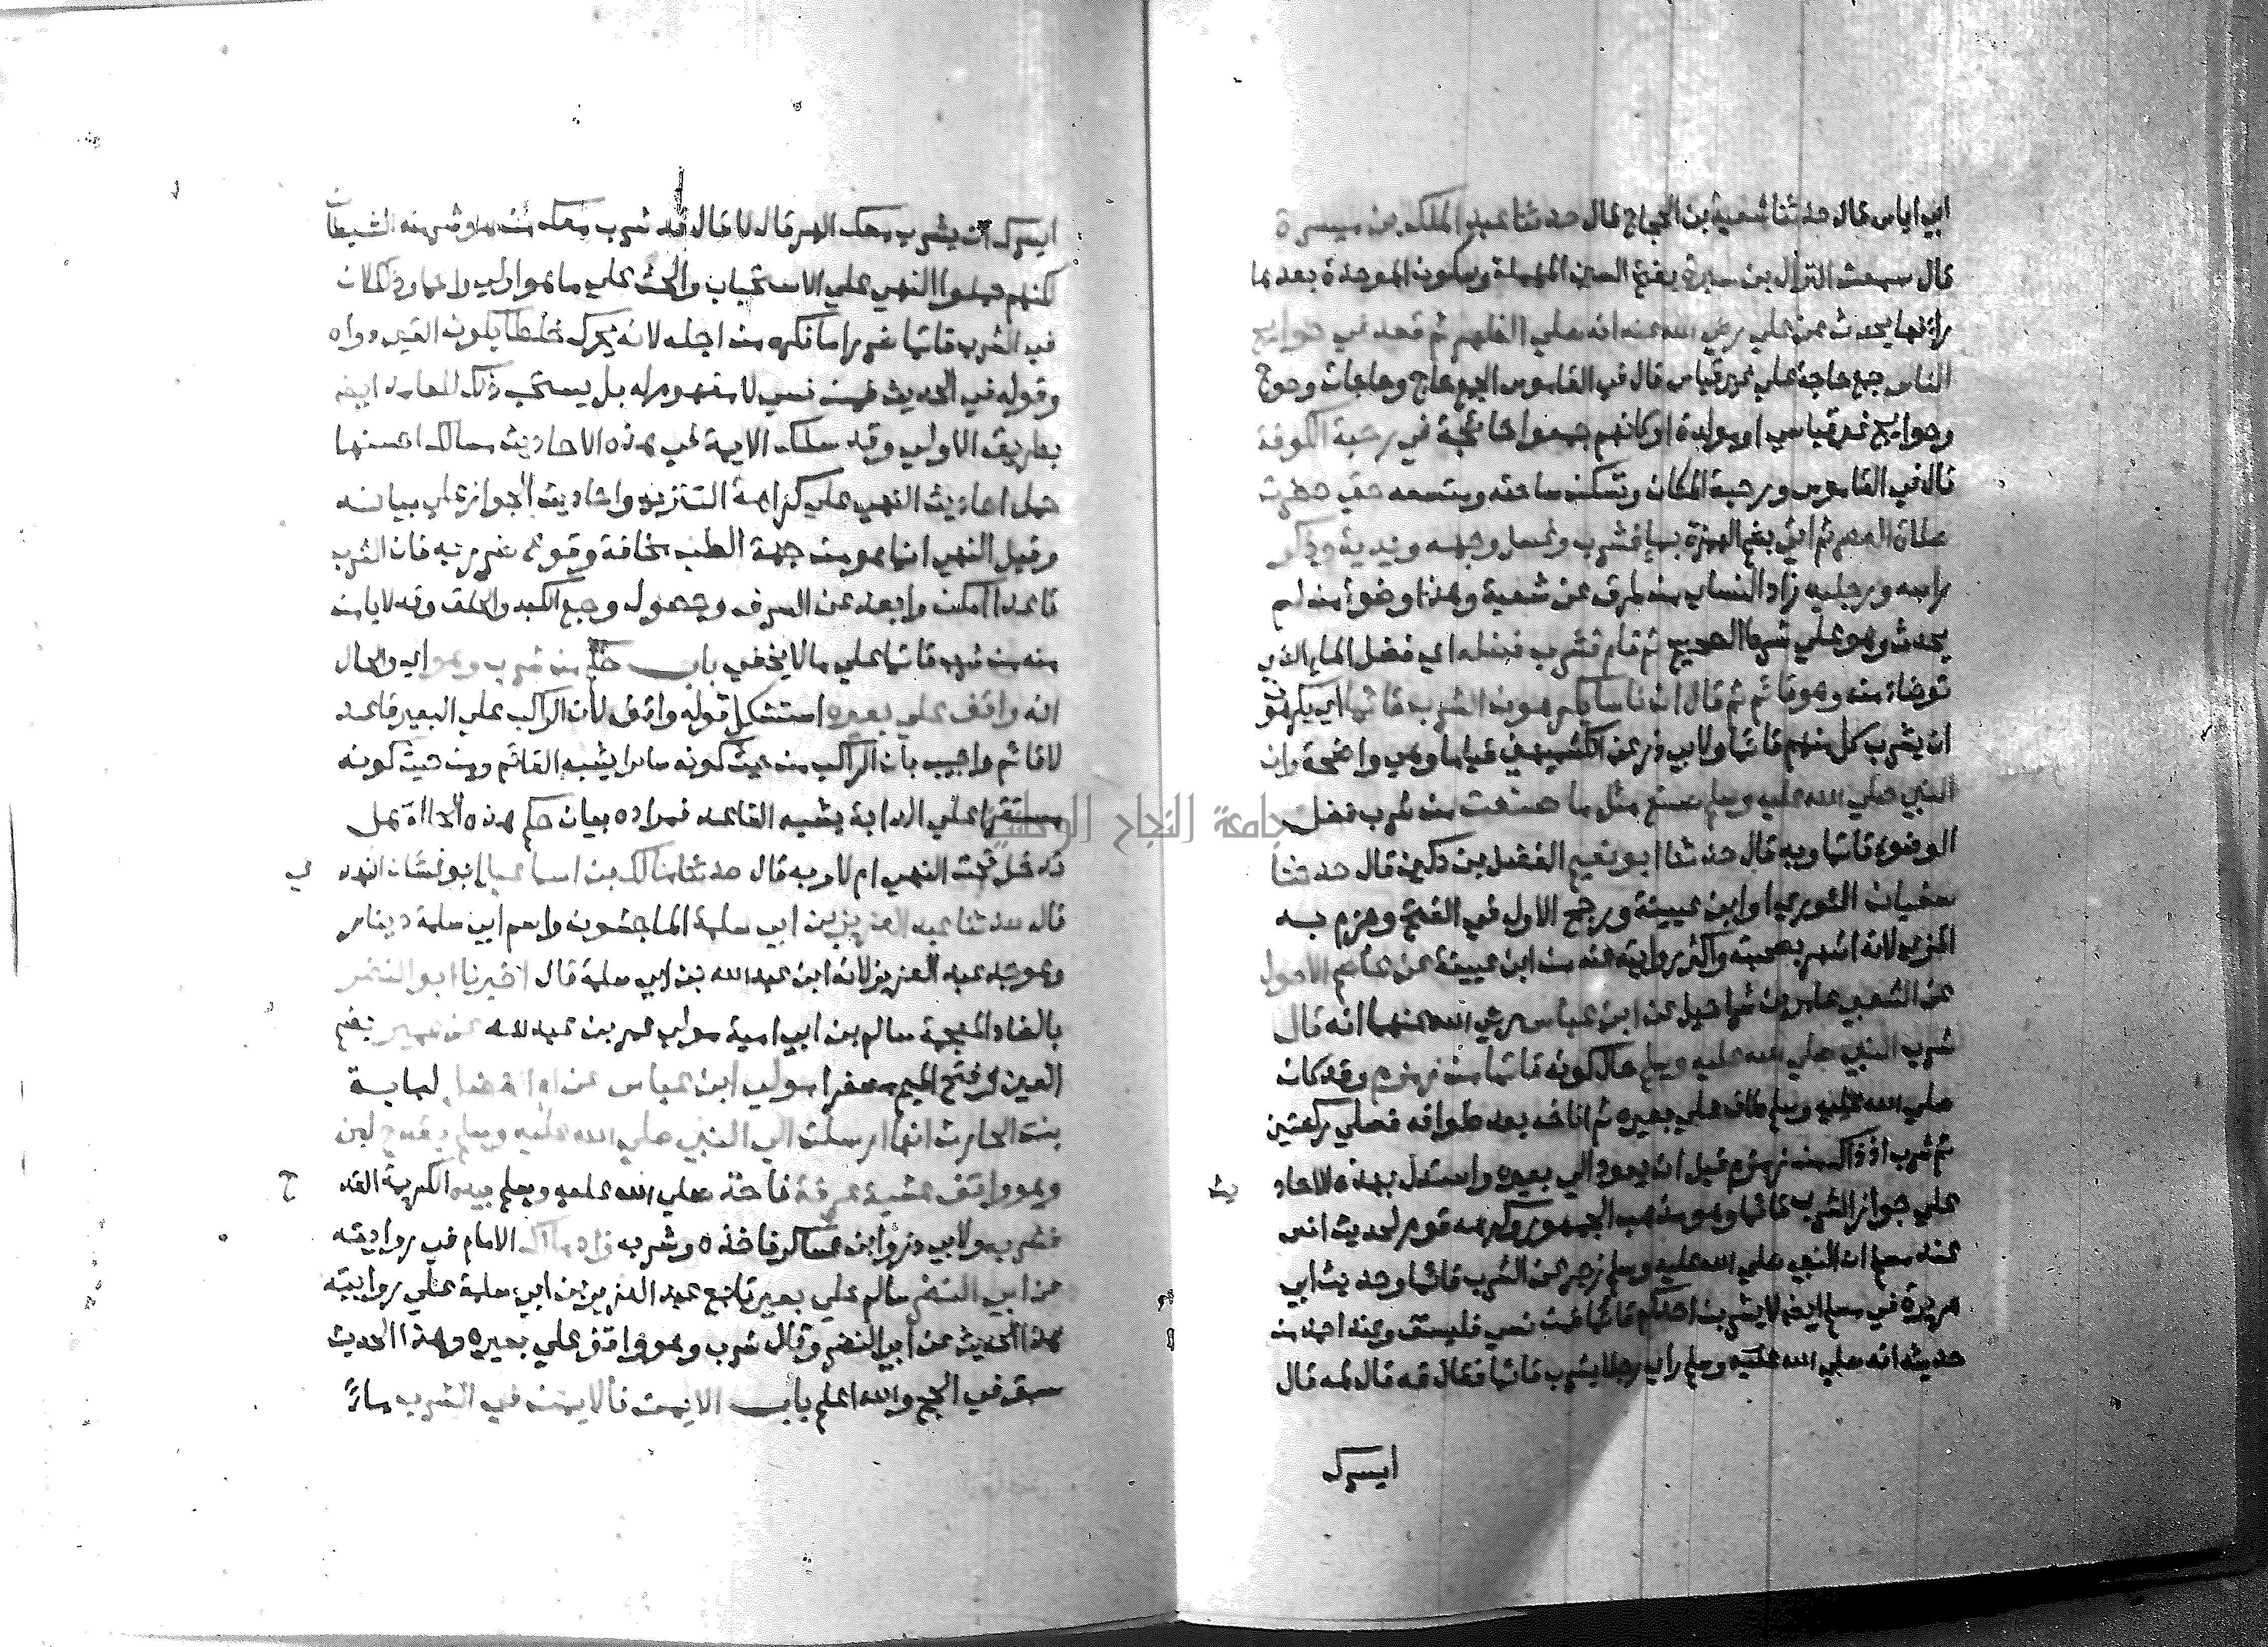 ابي اياس قال حدثنا شعبة بن الحجاج قال حدثنا عبد الملك بن ميسرة
قال سمعت النزال بن سبرة بفتح السين المهملة وسكون الموحدة بعدها
را انها يحدث عن علي رضي الله عنه انه صلي الظهر ثم قعد في حوايج
الناس جمع حاجة علي غير قياس قال في القاموس الجمع حاج وحاجات وحوج
وحوايج غير قياسي او مولدة او كانهم جمعوا حائجة في رحبة الكوفة
قال في القاموس ورحبة المكان وتسكن ساحته ومتسعه حتي حضرت
صلاة العصر ثم اتي بضم الهمزة بما فشرب وغسل وجهه ويديه وذكر
راسه ورجليه زاد النساي من طرق عن شعبة وهذا وضوء من لم
يحدث وهو علي شرط الصحيح ثم قام فشرب فضله اي فضل الماء الذي
توضا منه وهو قائم ثم قال ان ناسا يكرهون الشرب قائما اي يكرهون
ان يشرب كل منهم قائما ولابي ذر عن الكشميهني قياما وهي واضحة وان
النبي صلي الله عليه وسلم صنع مثل ما صنعت من شرب فضل
الوضوء قائما وبه قال حدثنا ابو نعيم الفضل بن دكين قال حدثنا
سفيان الثوري او ابن عيينة ورجح الاول في الفتح وجزم به
المزي لانه اشهر بصحبته واكثر رواية عنه من ابن عيينة عن عاصم الاحول
عن الشعبي عامر بن شراحيل عن ابن عباس رضي الله عنهما انه قال
شرب النبي صلي الله عليه وسلم حال كونه قائما من زمزم وقد كان
صلي الله عليه وسلم طاف علي بعيره ثم اناخه بعد طوافه فصلي ركعتين
ثم شرب اذ ذاك من زمزم قبل ان يعود الي بعيره واستدل بهذه الاحاد يث
علي جواز الشرب قائما وهو مذهب الجمهور وكرهه قوم لحديث انس
عند مسلم ان النبي صلي الله عليه وسلم زجر عن الشرب قائما وحديث ابي
هريرة في مسلم ايضا لا يشربن احدكم قائما فمن نسي فليستق وعند احمد من
حديثه انه صلي الله عليه وسلم راي رجلا يشرب قائما فقال قه قال لمه قال
ايسرك
ايسرك ان يشرب معك الهر قال لا قال قد شرب معك من هو شر منه الشيطان
لكنهم حملوا النهي علي الاستحباب والحث علي ما هو اولي واكمل وذلك لان
في الشرب قائما ضررا ما فكره من اجله لانه يحرك خلطا يكون القي دواه
وقوله في الحديث فمن نسي لا مفهوم له بل يستحب ذلك للعامد ايضا
بطريق الاولي وقد سلك الايمة في هذه الاحاديث مسالك احسنها
حمل احاديث النهي علي كراهة التنزيه واحاديث الجواز علي بيانه
وقيل النهي انما هو من جهة الطب مخافة وقوع ضرر به فان الشرب
قاعدا امكن وابعد عن الشرق وحصول وجع الكبد والحلق وقد لا يامن
منه من شرب قائما علي ما لا يخفي باب حكم من شرب وهو اي والحال
انه واقف علي بعيره استشكل قوله واقف لان الراكب علي البعير قاعد
لا قائم واجيب بان الراكب من حيث كونه سائرا يشبه القائم ومن حيث كونه
مستقرا علي الدابة يشبه القاعد فمراده بيان حكم هذه الحالة هل
تدخل تحت النهي ام لا وبه قال حدثنا مالك بن اسماعيل ابو غسان النهدي
قال حدثنا عبد العزيز بن ابي سلمة الماجشون واسم ابي سلمة دينار
وهو جد عبد العزيز لانه ابن عبد الله بن ابي سلمة قال اخبرنا ابو النضر
بالضاد المعجمة سالم بن ابي امية مولي عمر بن عبيد الله عن عمير بضم
العين وفتح الميم مصغرا مولي ابن عباس عن ام الفضل لبابة
بنت الحارث انها ارسلت الي النبي صلي الله عليه وسلم بقدح لبن
وهو واقف عشية عرفة فاخذ صلي الله عليه وسلم بيده الكريمة القد ح
فشربه ولابي ذر وابن عساكر فاخذه وشربه زاد مالك الامام في روايته
عن ابي النضر سالم علي بعيره تابع عبد العزيز بن ابي سلمة علي روايته
هذا الحديث عن ابي النضر وقال شرب وهو واقف علي بعيره وهذا الحديث
سبق في الحج والله اعلم باب الايمن فالايمن في الشرب
جامعة النجاح الوطنية